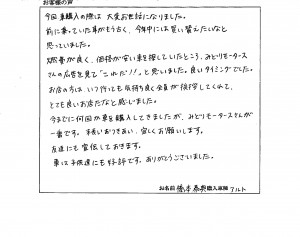 お客様の声
今回車購入の際は大変お世話になりました。
前に乗っていた車がもう古く、今年中には買い替えたいなと
思っていました。
燃費が良く、価格が安い車を探していたところ、みどりモータース
さんの広告を見て"これだ!!"と思いました。良いタイミングでした。
お店の方は、いつ行っても気持ち良く全員が挨拶してくれて、
とても良いお店だなと感じました。
今までに何回か車を購入してきましたが、みどりモータースさんが
一番です。末長いおつきあい、宜しくお願いします。
友達にも宣伝しておきます。
車は子供達にも好評です。ありがとうございました。
お名前 橋本 購入車種 アルト